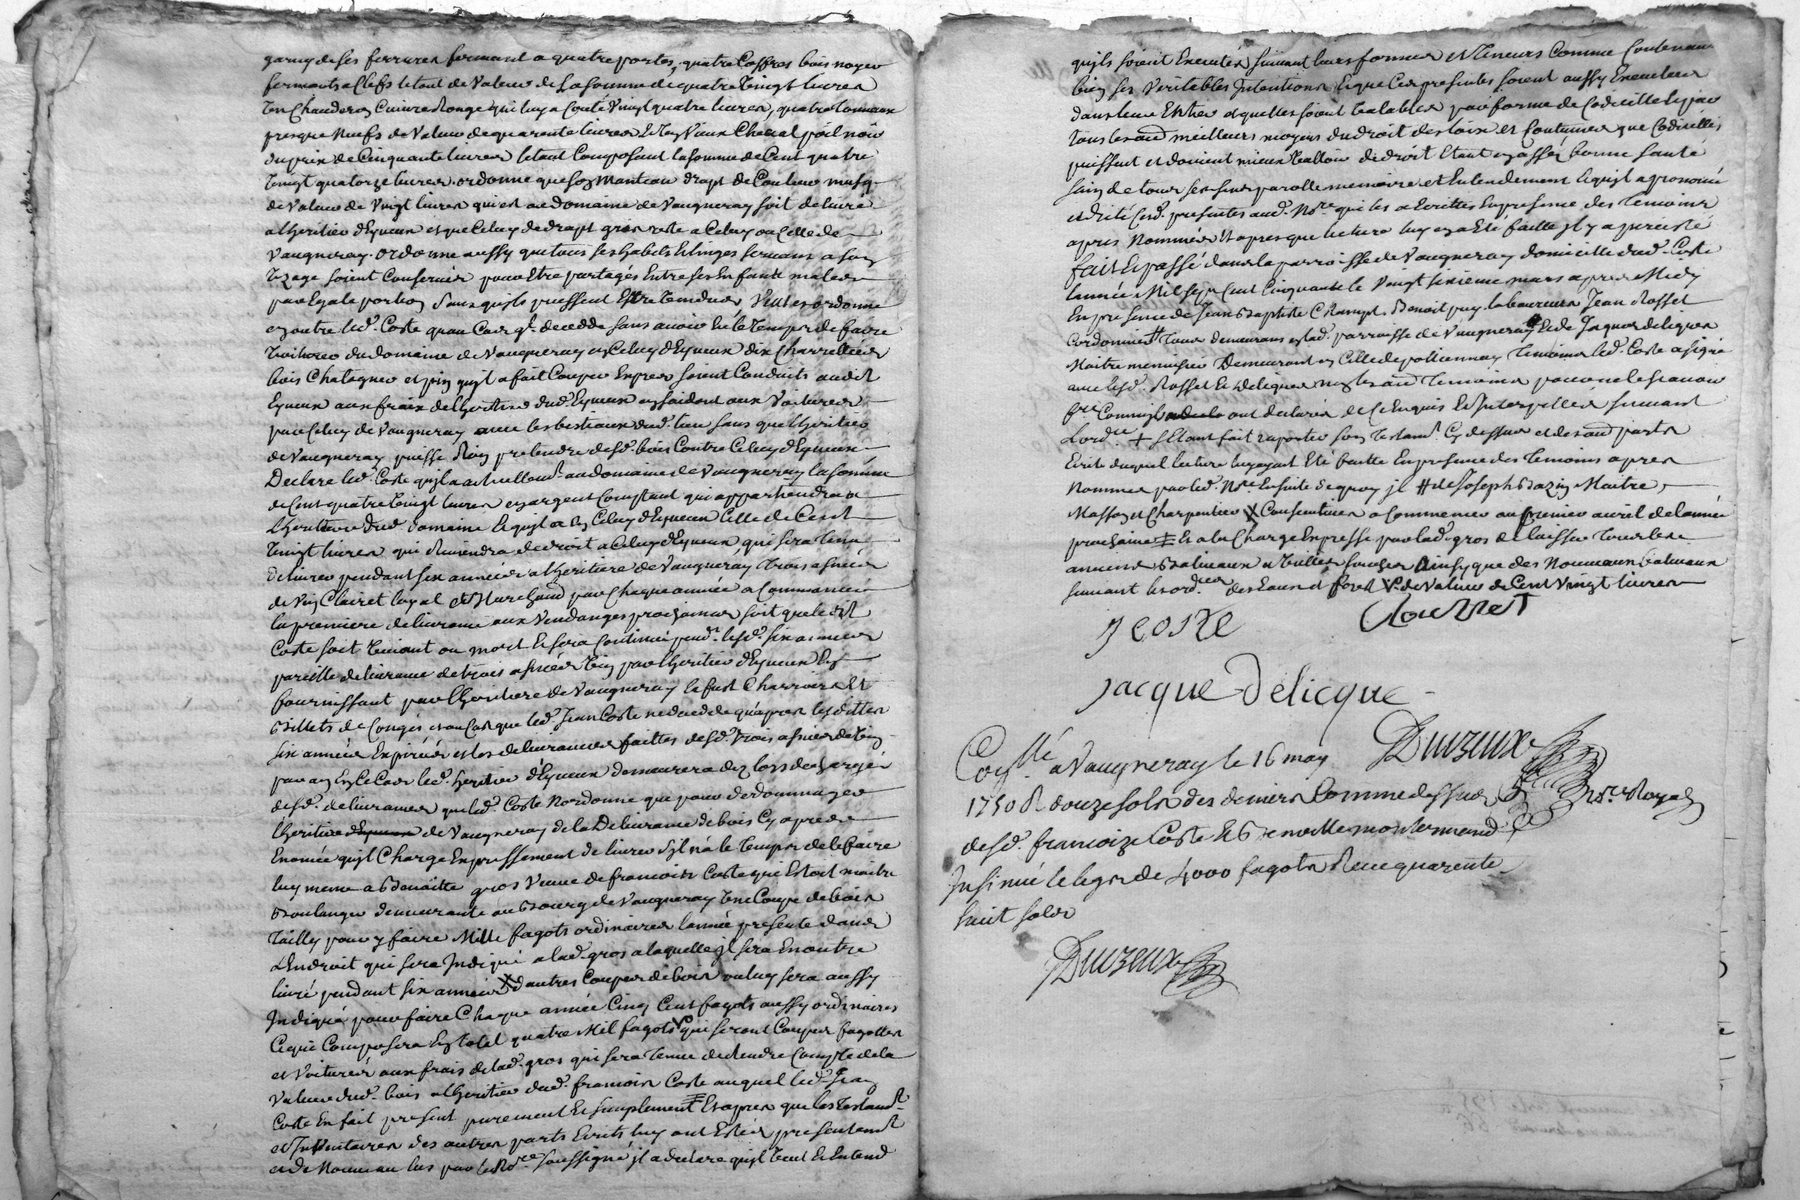 garny de ses ferrures fermant a quatre portes, quatre Coffres bois noyer
fermants a Clefs le tout de Valeur de La somme de quatre vingt livres
Un Chauderon Cuivre Rouge qui luy a Couté Vingt quatre livres, quatre tonneaux
presque Neufs de Valeur de quarente livres Et un Vieux Cheval poil noir
du prix de Cinquante livres le tout Composant la somme de Cent quatre
Vingt quatorze livres. ordonne que son Manteau drapt de Couleur musq
de Valeur de Vingt livres qui est au domaine de Vaugneray soit delivré
a lheritier d'Eyzeux et que Celuy de drapt gros reste a Celuy ou Celle de
Vaugneray. ordonne aussy que tous ses habits Et linges servant a son
Uzage soient Conservés pour Etre partagés Entre ses Enfants males
par Egale portion Sans qu'ils puissent Estre Vendues, Veut et ordonne
en outre led. Coste qu'au Cas ql. decedde sans avoir Eu le Temps de faire
Voiturer du domaine de Vaugneray en Celuy d'Eyzeux dix Charrettées
bois Chatagner et pin qu'il a fait Couper Exprés soient Conduits audit
Eyzeux aux frais de lheritier dud. Eyzeux en saidant aux Voitures
par Celuy de Vaugneray avec les bestiaux dud. lieu sans que lheritier
de Vaugneray puisse Rien pretendre desd. bois Contre Celuy d'Eyzeux
Declare led. Coste qu'il a actuellemt. au domaine de Vaugneray la somme
de Cent quatre Vingt livres en argent Comptant qui appartiendra a
lheritier dud. domaine Et qu'il a En Celuy d'Eyzeux Celle de Cent
Vingt livres qui Reviendra de droit a Celuy d'Eyzeux, qui sera tenu
delivrer pendant six années a lheritiere de Vaugneray, trois asnées
de Vin Clair et loyal Et Marchand pour Chaque année a Commancer
la premiere delivrance aux Vendanges prochaines soit que ledit
Coste soit Vivant ou mort Et sera Continué pendt. lesd. six années
pareille delivrance de trois asnées Vin par lheritier d'Eyzeux En
fournissant par lheritiere de Vaugneray le fust Charrois Et
billets de Congés et au Cas que led. Jean Coste ne decedde qu'apres lesdittes
six années Expirées et les delivrances faittes desd. trois asnées de Vin
par an En Ce Cas led. heritier d'Eyzeux demeurera dez lors dechargé
desd. delivrances que led. Coste N'ordonne que pour dedommager
lheritier d'Eyzeux de Vaugneray de la Delivrance de bois Cy apres
Enoncée qu'il Charge Expressement de livrer S'il n'a le Temps de le faire
luy meme a Benoitte gros Veuve de francois Coste qui Estoit maitre
Boulanger demeurante au Bourg de Vaugneray Une Coupe de bois
Tailly pour y faire Mille fagots ordinaires lannée presente dans
L'Endroit qui sera Indiqué a lad. gros a laquelle il sera En outre
livré pendant six années X d'autres Coupes de bois ou luy sera aussy
Indiqué pour faire Chaque année Cinq Cent fagots aussy ordinaires
Ce qui Composera En total quatre Mil fagots qui seront Coupés fagottés
et Voiturés aux frais de lad. gros qui sera tenue de Rendre Compte de la
Valeur dud. bois a lheritier dud. francois Coste auquel led. Jean
Coste En fait present purement Et simplement Et apres que les Testamt.
et Inventaires des autres parts Ecrits luy ont Estés presentemt.
et de Nouveau lus par le Nore. soussigné il a declaré qu'il Veut Et Entend
qu'ils soient Executés suivant leurs formes et Teneurs Comme Contenant
bien ses Veritables Intentions Et que Ces presentes soient aussy Executées
dans leur Entier et qu'elles soient Valables par forme de Codicille Et par
Tous les autres meilleurs moyens du droit des loix et Coutumes que Codicilles
puissent et doivent mieux Valloir de droit Etant en assez bonne santé
sain de tous ses sens parolle memoire et Entendement Et qu'il a prononcé
et dicté Cesd. presentes aud. Nore. qui les a Ecrittes En presence des Temoins
apres Nommés Et apres que lecture luy en a Eté faitte il y a persisté
fait Et passé dans la parroisse de Vaugneray domicille dud. Coste
lannée Mil Sept Cent Cinquante le Vingt sixieme mars apres Midy
En presence de Jean Baptiste Champt. Benoit puy laboureurs Jean Rosset
Cordonnier # Tous demeurans en lad. parroisse de Vaugneray Et de Jaques Delique
Maitre menuisier Demeurant en Celle de pollionnay Temoins led. Coste a signé
avec lesd. Rosset Et Delique non les autres Temoins pour ne le scavoir
ont declarés de Ce Enquis Et Interpellés suivant
Lordce. + S'Etant fait raporter son Testamt. Cy dessus et des autres parts
Ecrits duquel lecture luy ayant Eté faitte En presence des Temoins apres
Nommés par led. Nore. Ensuite de quoy il # de Joseph Bazin Maitre
Masson et Charpentier X Consecutives a Commencer au premier avril de lannée
prochaine Et a la Charge Expresse par lad. gros de laisser Tous les
anciens Baliveaux Et Vieilles souches Ainsy que des Nouveaux baliveaux
suivant les ordces. des Eaux et forets V. de Valeur de Cent Vingt livres
J COSTE
J Rosset
Jacque Delicque
Duvzeux
Nore. Royal
Conllé a Vaugneray le 16 may
1750 R. douze sols des deniers Comme dessus
desd. francoize Coste Et
Insinué le legs de 4000 fagots Receu quarente
huit sols
Duvzeux